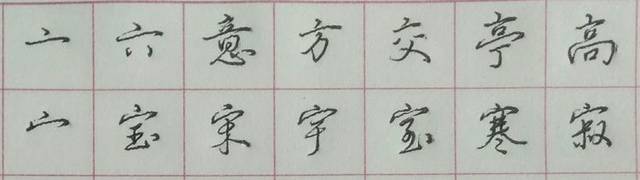 亠六意方交亭高
宀宝宋宇室寒寂